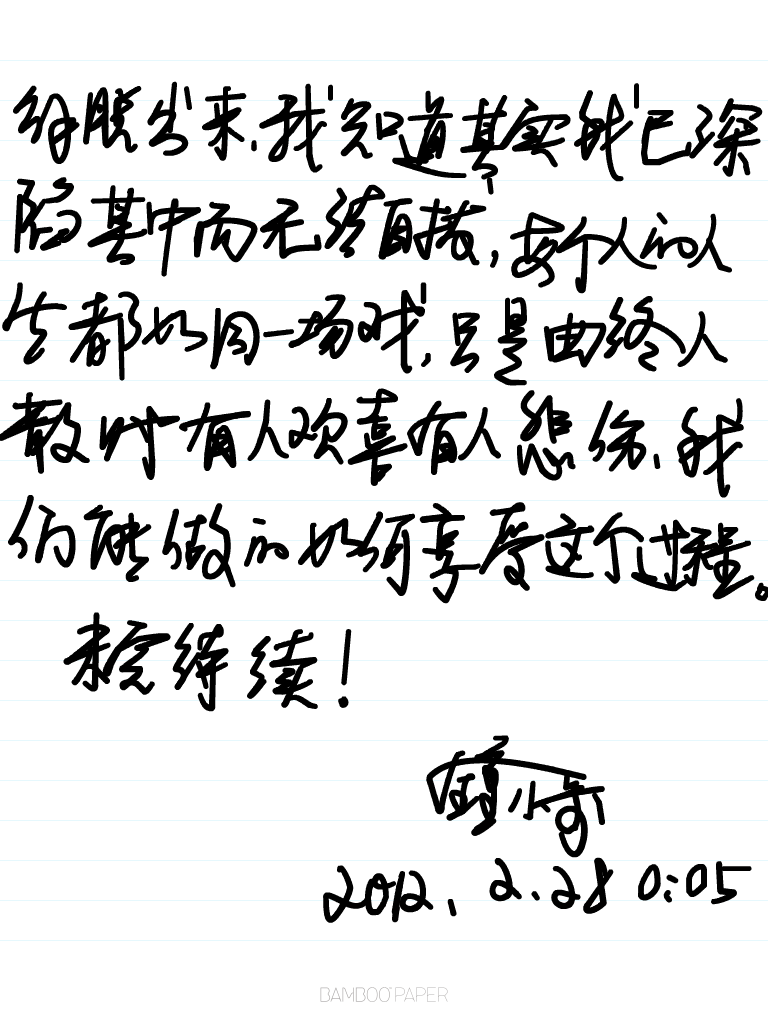 解脱出来，我知道其实我已深
陷其中而无法自拔，每个人的人
生都如同一场戏，只是曲终人
散时有人欢喜有人悲伤，我
们能做的如何享受这个过程。
未完待续！
小奇
2012.2.28 0:05
BAMBOO PAPER